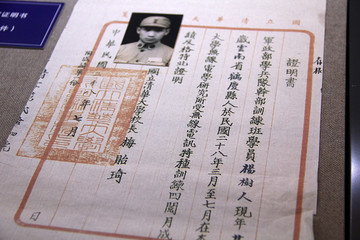 國立清華大
證明書
軍政部學兵隊幹部訓練班學員楊樹人現年
歲雲南省鶴慶縣人於民國二十八年三月至七月在
大學無線電學研究所受無線電訊特種訓練四閱月成
績及格特此證明
國立清華大學校長 梅貽琦
中華民國
年七月
日
存根
证明书
件）